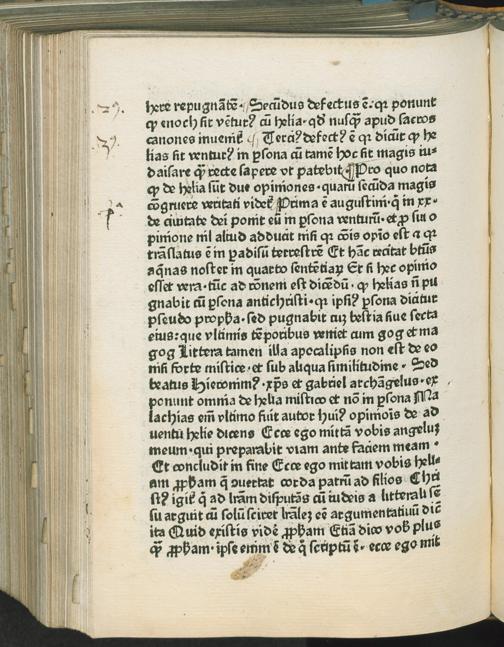 here repugnātē· Secūdus defectus ē· qꝛ ponunt
ꝙ enoch sit vētur⁹ cū helia· qđ nusq̄ apud sacros
canones inuenit̄ Terci⁹ defect⁹ ē qꝛ dicūt ꝙ he
lias sit ventur⁹ in ꝑsona cū tamē hoc sit magis iu-
daisare ꝙ̄ recte sapere vt patebit· Pro quo nota
ꝙ de helia sūt due opiniones· quaꝝ secūda magis
cōgruere veritati videt̄ Prima ē augustini· q̄ in xx·
de ciuitate dei ponit eū in ꝑsona venturū· et ꝓ sui o
pinione nil aliud adducit nisi qꝛ cōis opīo est ⁊ qꝛ
trāslatus ē in ꝑadisū terrestrē Et hāc recitat btūs
aq̄nas noster in quarto sentētiaꝝ Et si hec opinio
esset vera· tūc ad rōnem est dicēdū· ꝙ helias n̄ pu
gnabit cū ꝑsona antichristi· qꝛ ipsi⁹ ꝑsona dicitur
pseudo propħa· sed pugnabit cuȝ bestia siue secta
eius: que vltimis tēporibus veniet cum gog et ma
gog Littera tamen illa apocalipsis non est de eo
nisi forte mistice· et sub aliqua similitudine· Sed
beatus Hieronim⁹· xp̄s et gabriel archāgelus· ex
ponunt omnia de helia mistico et nō in ꝑsona Ma
lachias em̄ vltimo fuit autor hui⁹ opiniōis de ad
uentu helie dicens Ecce ego mittā vobis angeluȝ
meum· qui preparabit viam ante faciem meam·
Et concludit in fine Ecce ego mittam vobis heli-
am ꝓpħam q̄ ɔuertat corda patrū ad filios Chri
st⁹ igit̄ q̄ ad lr̄am disputās cū iudeis a litterali sē
su arguit cū solū sciret lr̄aleȝ eē argumentatiuū dic̄
ita Quid existis videre ꝓpħam Etiā dico vob̄ plus
ꝙ̄ ꝓpħam· ipse enim ē de q̄ scriptū ē· ecce ego mit